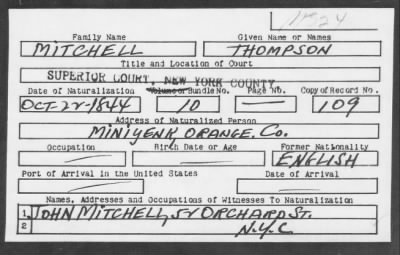 Family Name Given Name or Names
MITCHELL THOMPSON
Title and Location of Court
SUPERIOR COURT, NEW YORK COUNTY
Date of Naturalization Volume or Bundle No. Page No. Copy of Record No.
OCT-22-1844 10 — 109
Address of Naturalized Person
MINIYENK, ORANGE, CO.
Occupation Birth Date or Age Former Nationality
— — ENGLISH
Port of Arrival in the United States Date of Arrival
— —
Names, Addresses and Occupations of Witnesses To Naturalization
1 JOHN MITCHELL, 54 ORCHARD ST.
2 N.Y.C